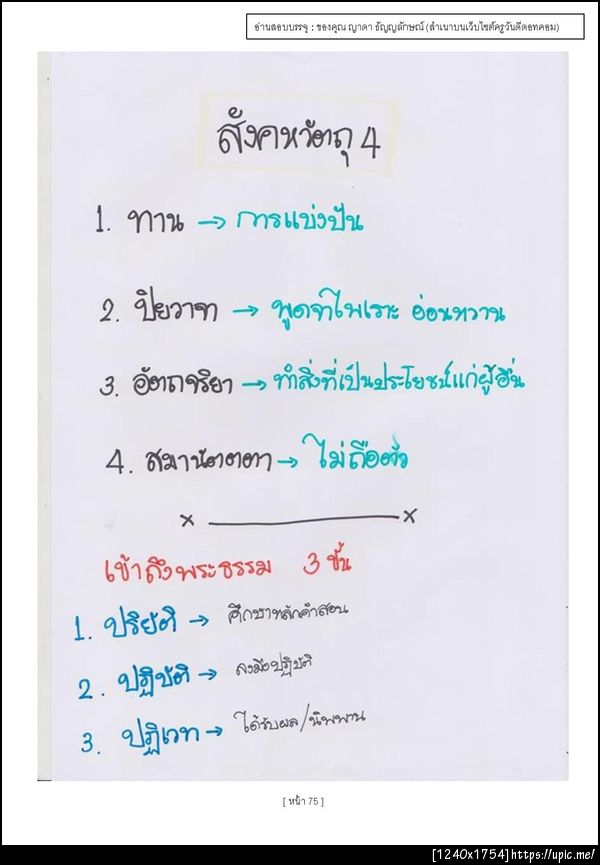 อ่านสอบบรรจุ : ของคุณ ญาดา ธัญญลักษณ์ (สำเนาบนเว็บไซต์ครูวันดีดอทคอม)
สังคหวัตถุ 4
1. ทาน → การแบ่งปัน
2. ปิยวาจา → พูดจาไพเราะ อ่อนหวาน
3. อัตถจริยา → ทำสิ่งที่เป็นประโยชน์แก่ผู้อื่น
4. สมานัตตตา → ไม่ถือตัว
x x
เข้าถึงพระธรรม 3 ขั้น
1. ปริยัติ → ศึกษาหลักคำสอน
2. ปฏิบัติ → ลงมือปฏิบัติ
3. ปฏิเวท → ได้รับผล/นิพพาน
[ หน้า 75 ]
[1240x1754]https://upic.me/